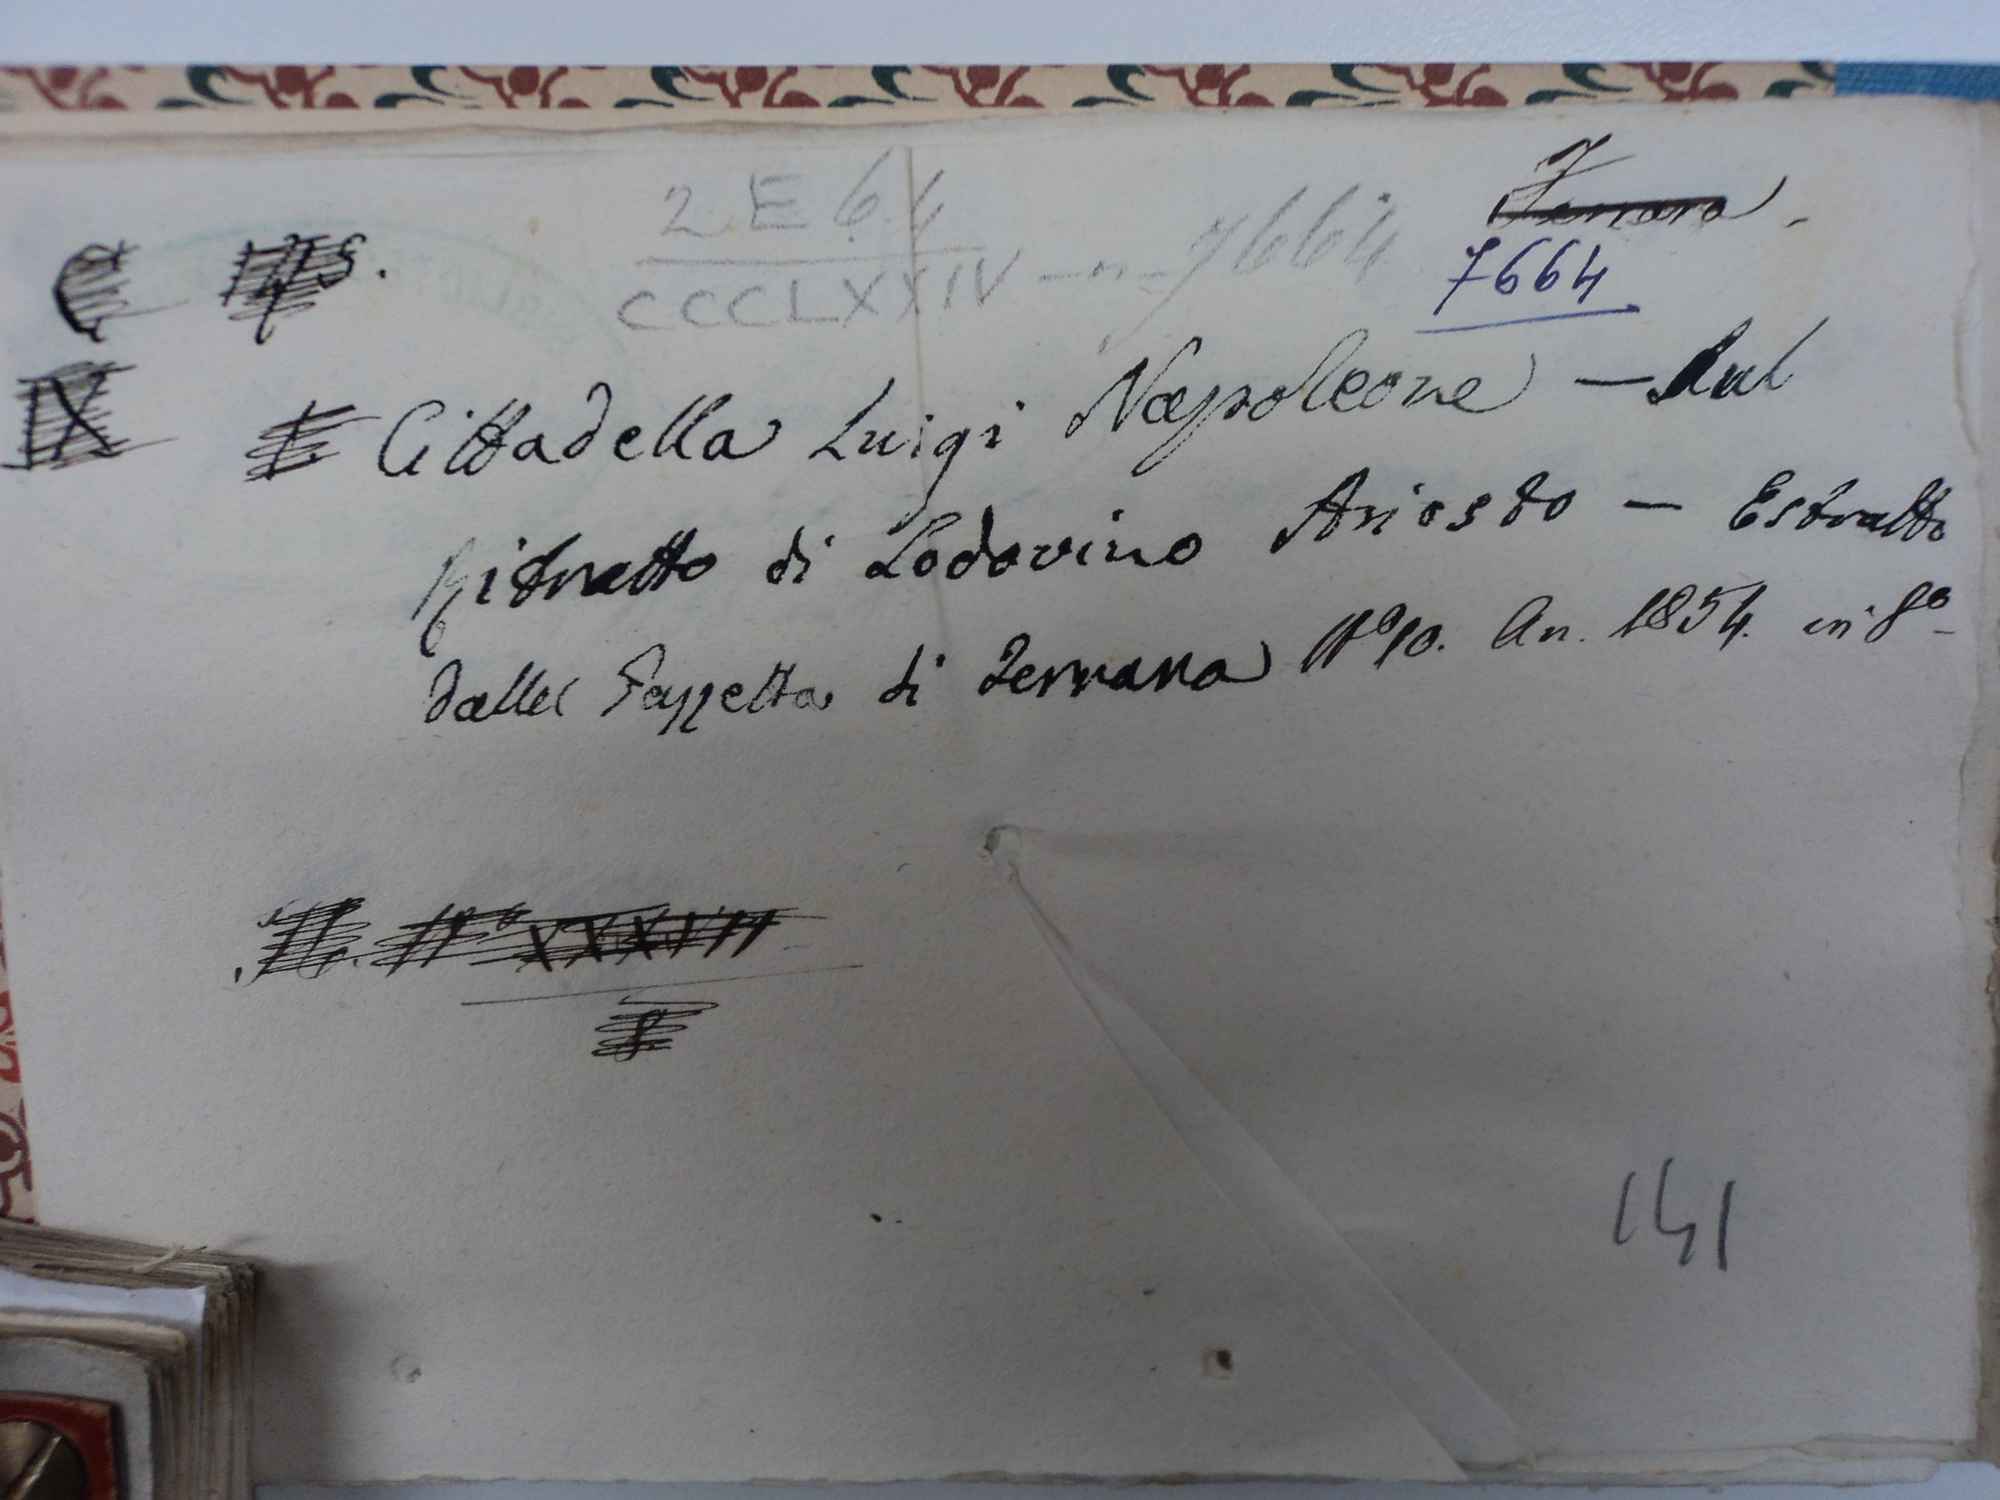 2 E 6.4
CCCLXXIV - n. 7664
Ferrara.
7664
C
IX
Cittadella Luigi Napoleone — Sul
Ritratto di Lodovico Ariosto — Estratto
dalla Gazzetta di Ferrara N° 10. An. 1854. in 8°
N° XXXVII
141